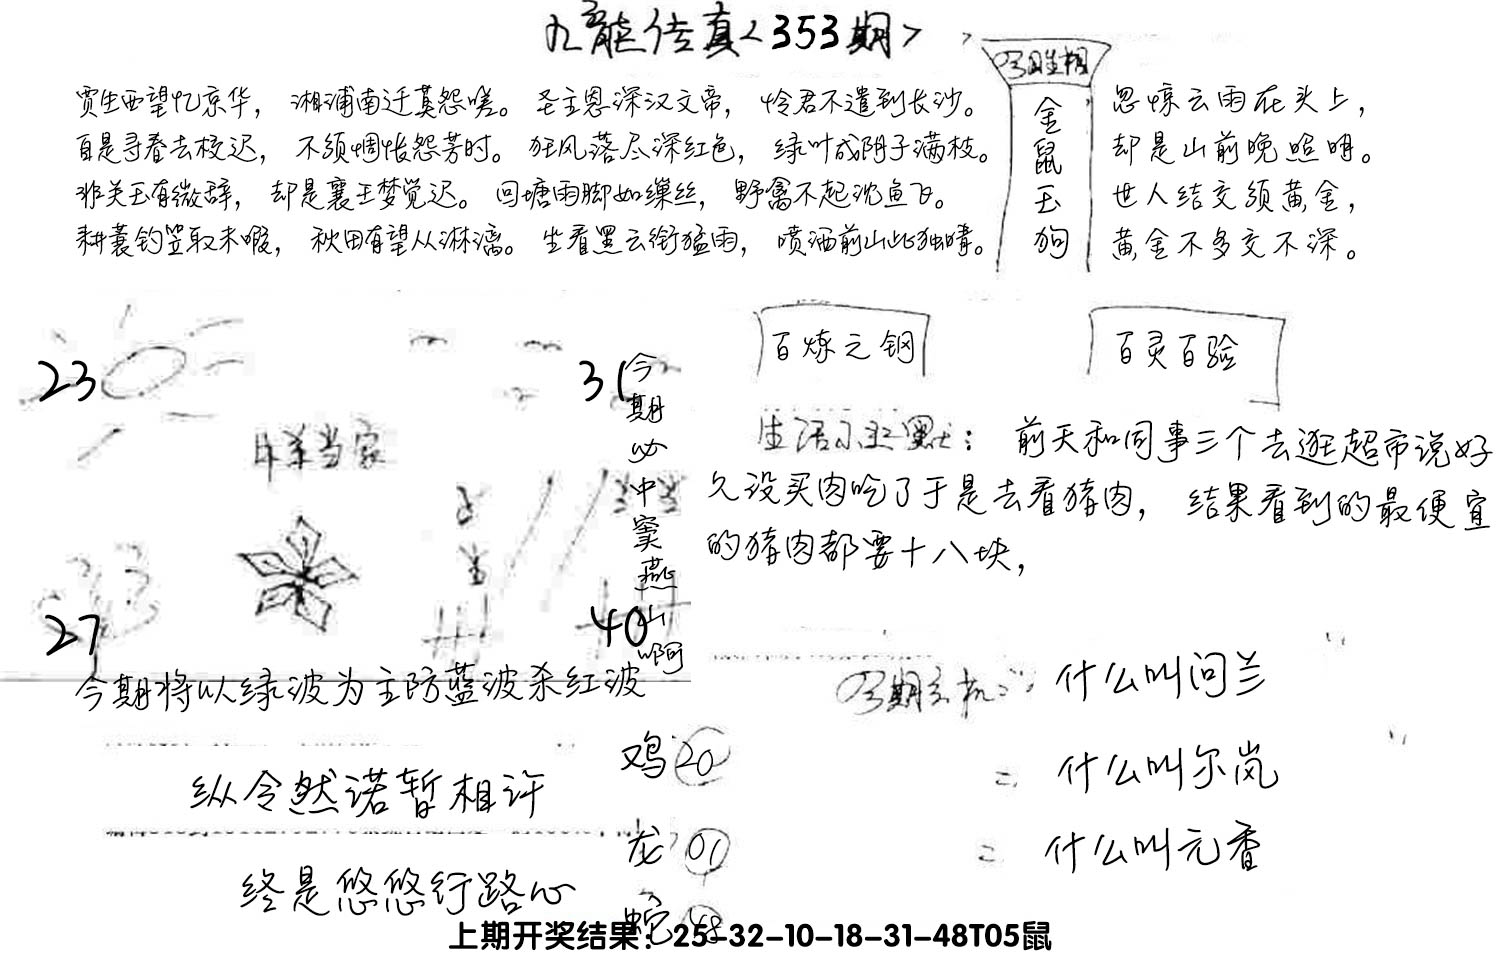 九龙传真<353期>
今期生相
金鼠玉狗
贾生西望忆京华，湘浦南迁莫怨嗟。圣主恩深汉文帝，怜君不遣到长沙。
自是寻春去校迟，不须惆怅怨芳时。狂风落尽深红色，绿叶成阴子满枝。
非关玉有微辞，却是襄王梦觉迟。回塘雨脚如缫丝，野禽不起沈鱼飞。
耕蓑钓笠取未暇，秋田有望从淋漓。生看黑云衔猛雨，喷洒前山此独晴。
忽惊云雨在头上，
却是山前晚照明。
世人结交须黄金，
黄金不多交不深。
23
31
牛羊当家
27
40
今期必中窦燕山啊
今期将以绿波为主防蓝波杀红波
百炼之钢
百灵百验
生活小幽默：前天和同事三个去逛超市说好
久没买肉吃了于是去看猪肉，结果看到的最便宜
的猪肉都要十八块，
今期玄机：什么叫问兰
= 什么叫尔岚
= 什么叫元香
纵令然诺暂相许
终是悠悠行路心
鸡20
龙01
蛇48
上期开奖结果：25-32-10-18-31-48T05鼠